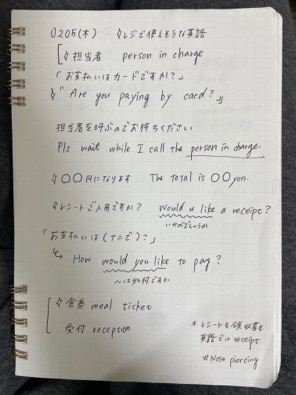 0205(木) レジで使えそうな英語
担当者 person in charge
「お支払いはカードですか?」
"Are you paying by card?"
担当者を呼ぶのでお待ちください
Plz wait while I call the person in charge.
○○円になります The total is ○○yen.
レシートご入用ですか? Would u like a receipt?
いかがでしょうか
「お支払いは(ナニで)?」
How would you like to pay?
〜はいかがですか
食券 meal ticket
受付 reception
*レシートも領収書も
英語では receipt
#Nose piercing